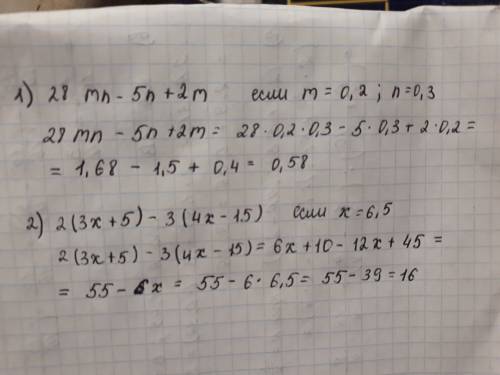 1) 28 mn - 5n + 2m если m = 0,2 ; n = 0,3
28 mn - 5n + 2m = 28 · 0,2 · 0,3 - 5 · 0,3 + 2 · 0,2 =
= 1,68 - 1,5 + 0,4 = 0,58
2) 2(3x + 5) - 3(4x - 15) если x = 6,5
2(3x + 5) - 3(4x - 15) = 6x + 10 - 12x + 45 =
= 55 - 6x = 55 - 6 · 6,5 = 55 - 39 = 16